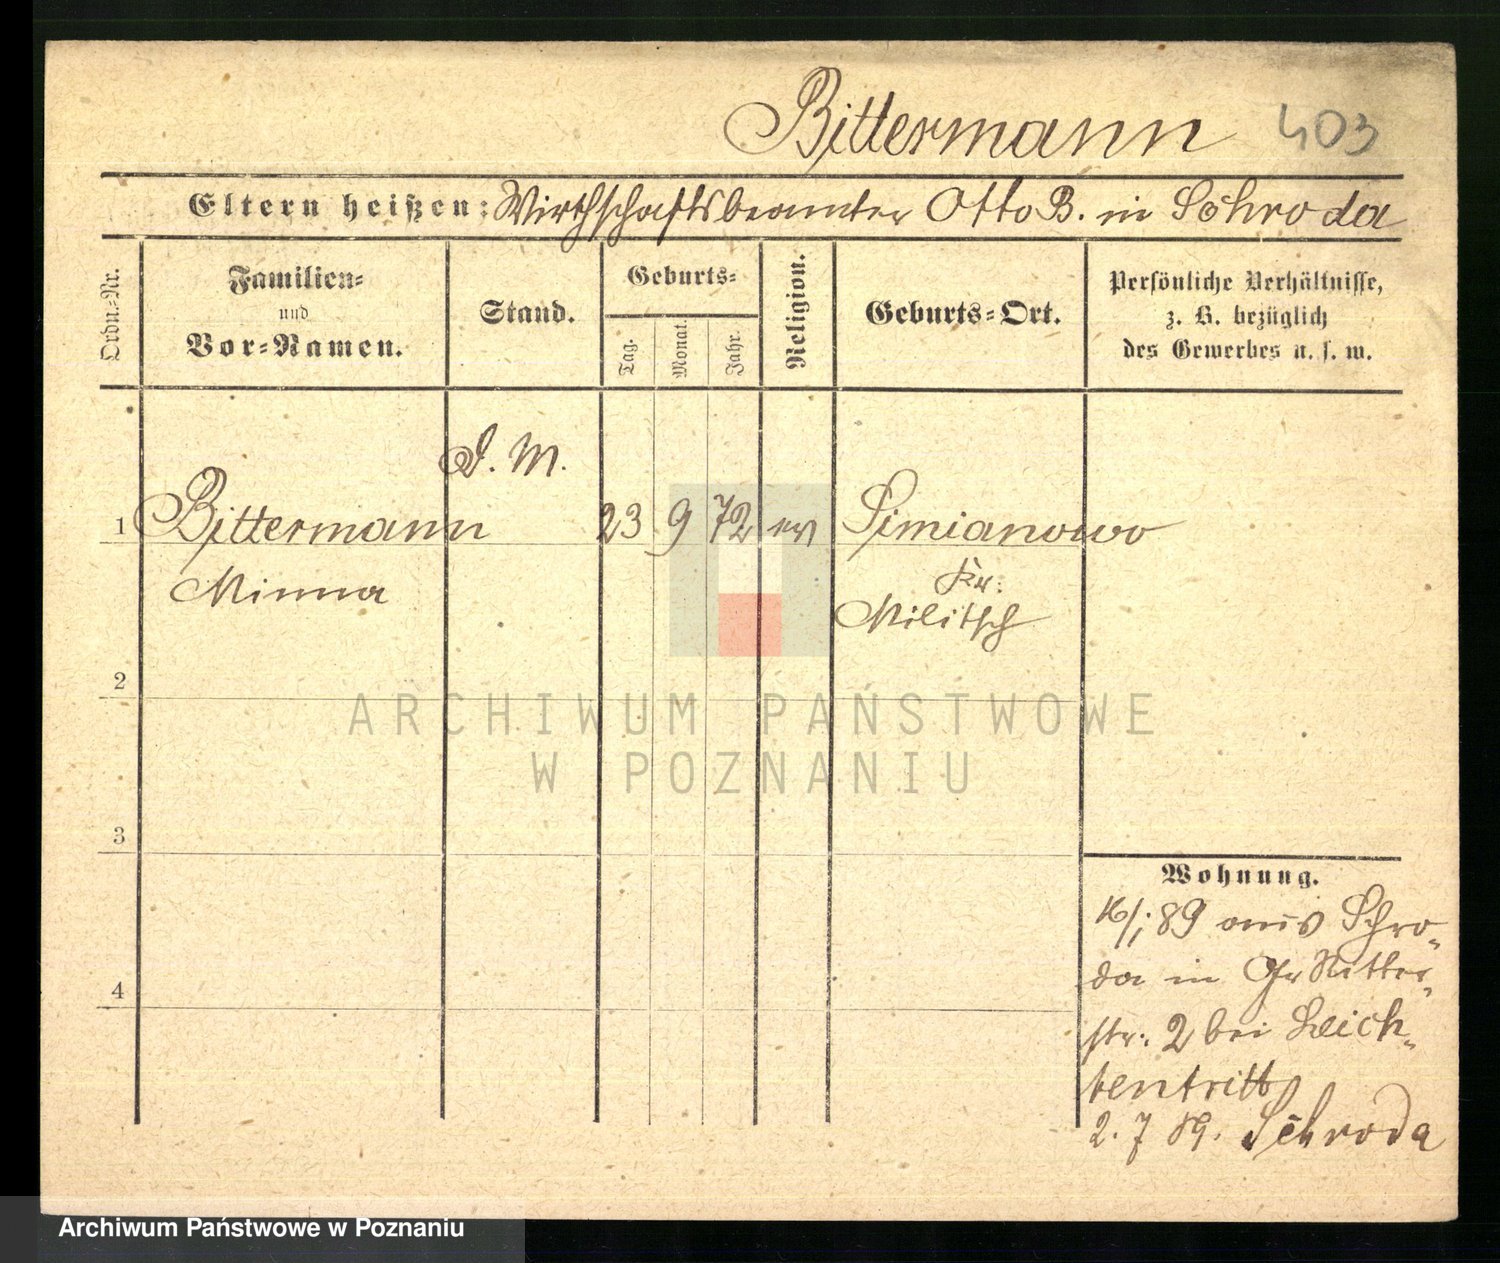 Bittermann 403
Eltern heißen: Wirthschaftsbeamter Otto B. in Schroda
Ordn.-Nr.
Familien-
und
Vor-Namen.
Stand.
Geburts-
Tag.
Monat.
Jahr.
Religion.
Geburts-Ort.
Persönliche Verhältnisse,
z. B. bezüglich
des Gewerbes u. s. w.
D. M.
1 Bittermann 23 9 72 ev Simianowo
Minna Kr.
Militsch
2
ARCHIWUM PAŃSTWOWE
W POZNANIU
3
Wohnung.
16/1 89 aus Schro-
da in Gr Ritter-
4
str. 2 bei Leich-
tentritt
2. 7 89. Schroda
Archiwum Państwowe w Poznaniu